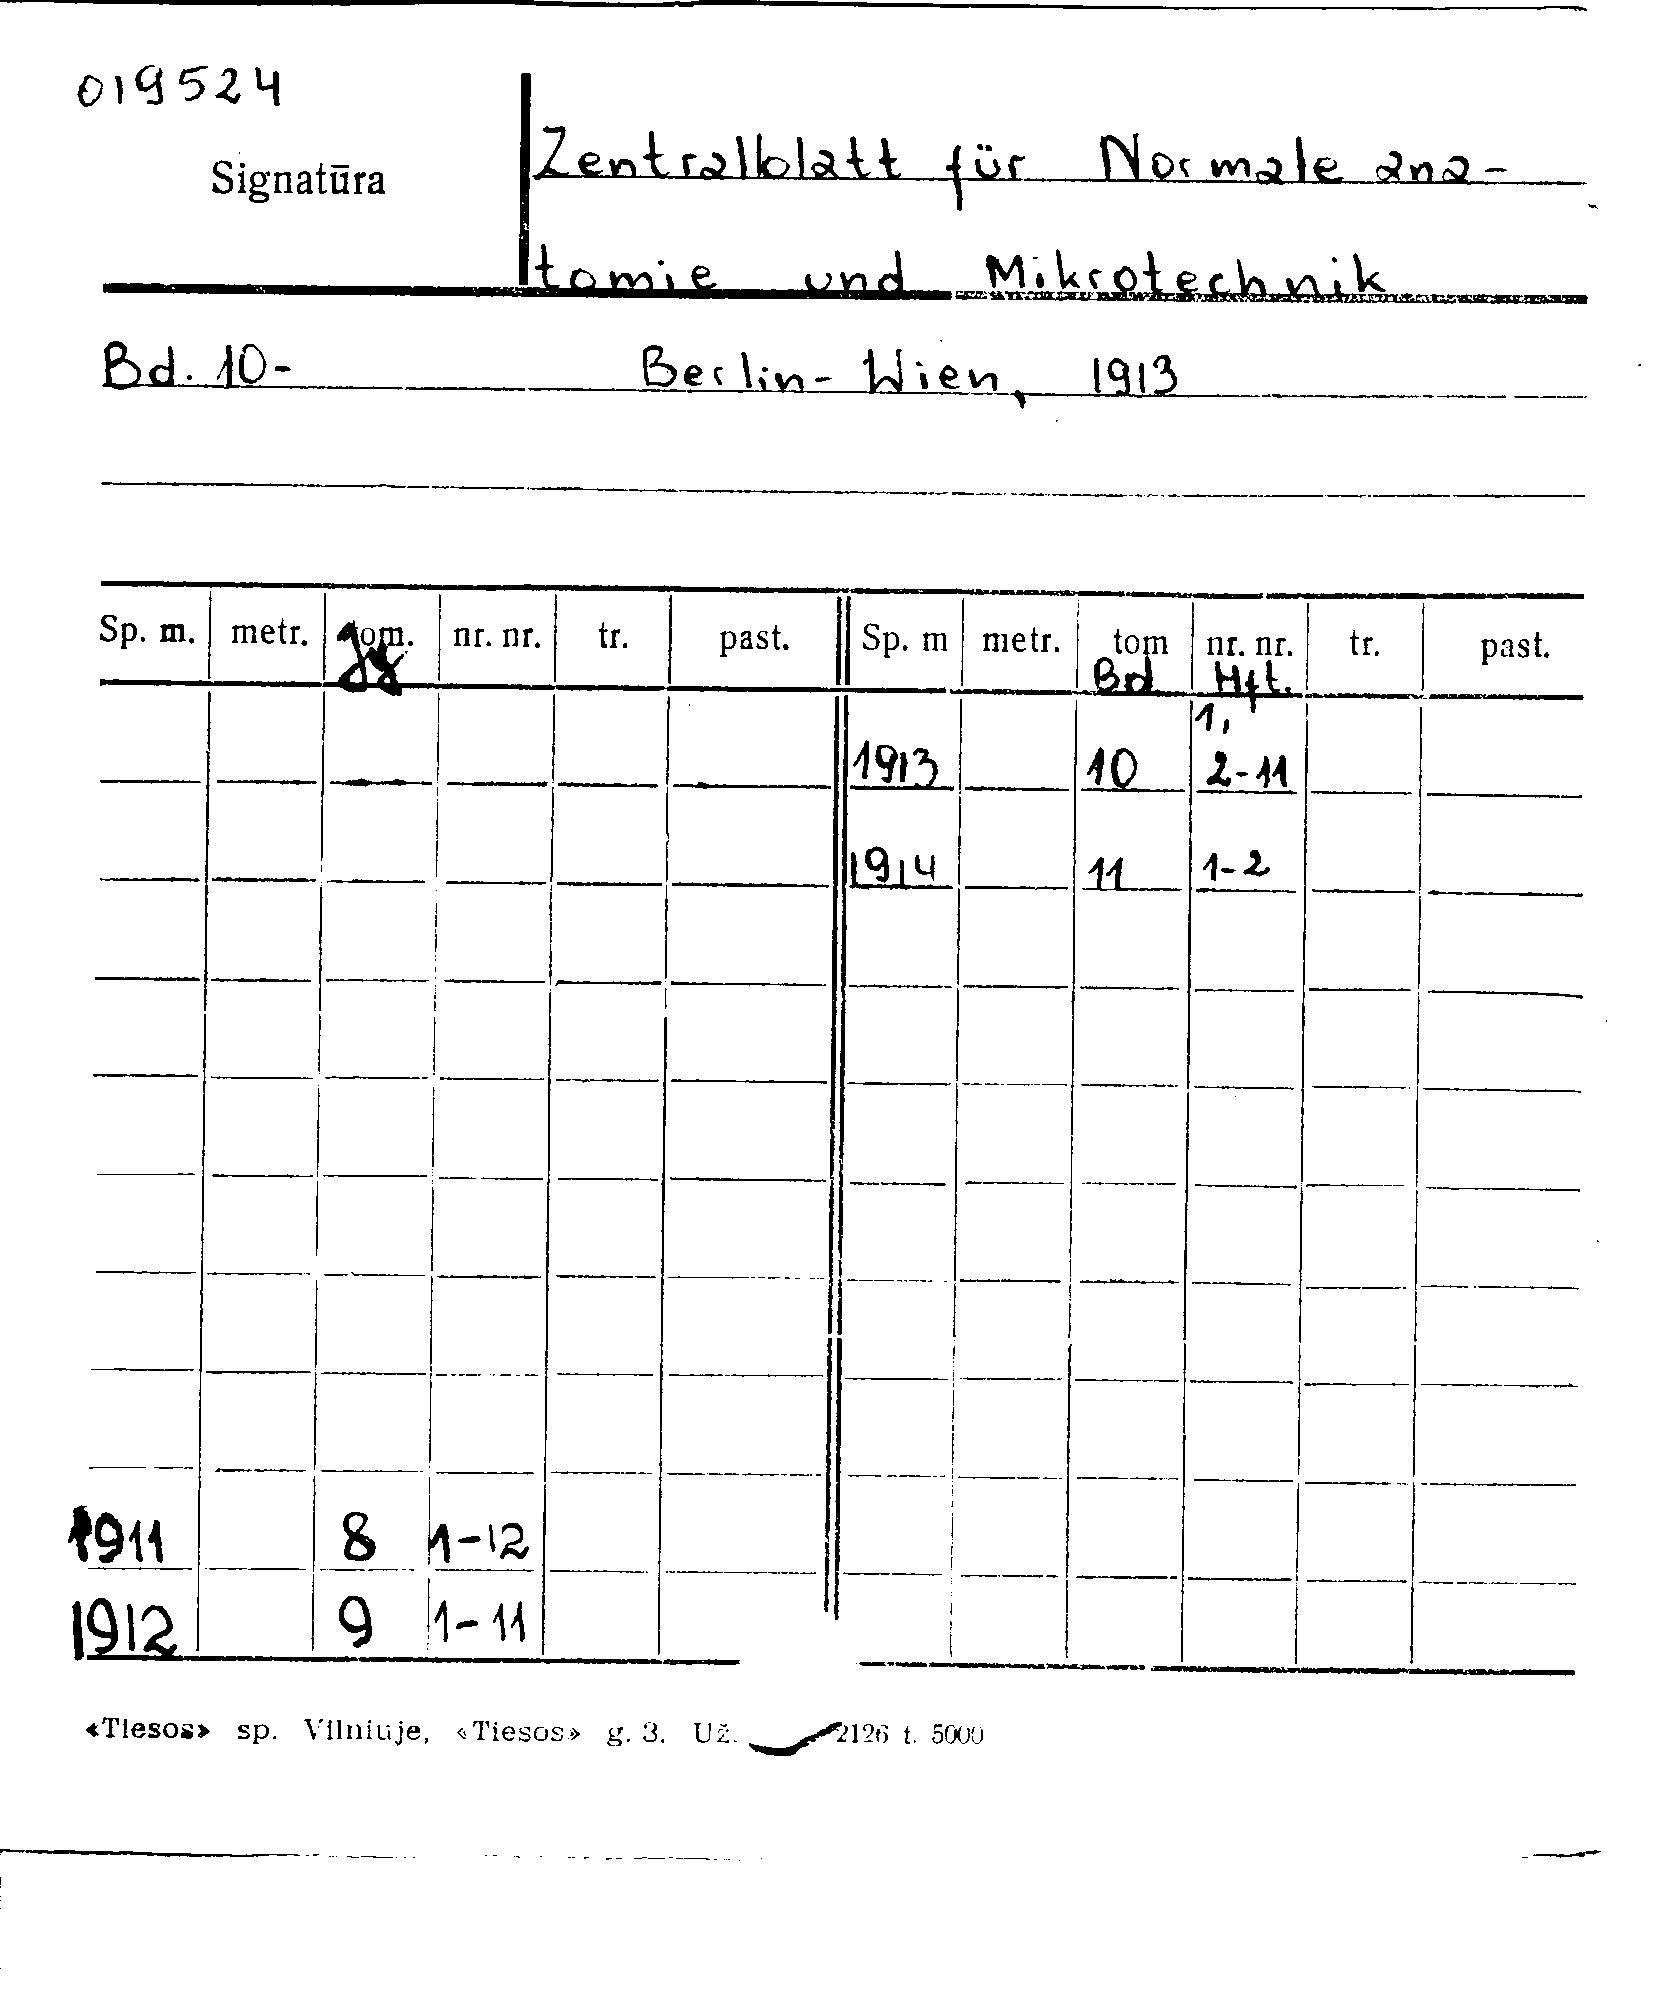 019524
Signatūra
Zentralblatt für Normale ana-
tomie und Mikrotechnik
Bd. 10- Berlin-Wien, 1913
Sp. m. metr. tom. nr. nr. tr. past. Sp. m metr. tom nr. nr. tr. past.
Jg Bd Hft.
1,
1913 10 2-11
1914 11 1-2
1911 8 1-12
1912 9 1-11
«Tiesos» sp. Vilniuje, «Tiesos» g. 3. Už. 2126 t. 5000